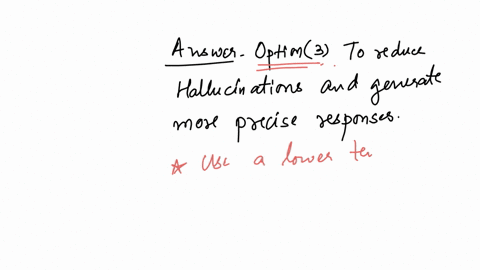 Answer - Option(3) To reduce
Hallucinations and generate
more precise responses.
* Use a lower te